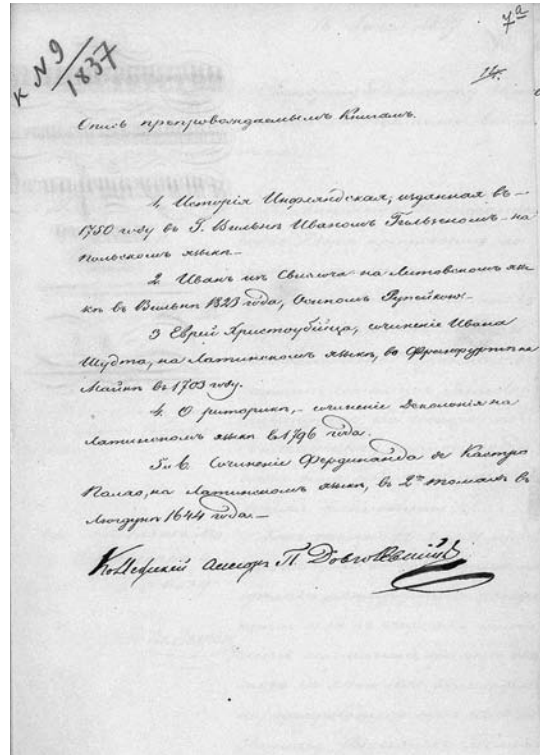 7а
к N 9/1837
14.
Опись препровождаемымъ Книгамъ.
1. Исторія Инфляндская, изданная въ
1750 году въ Г. Вильнѣ Иваномъ на
польскомъ языкѣ.
2. Иванъ изъ Свислоча на Литовскомъ язы-
кѣ въ Вильнѣ 1823 года, Осипомъ
3 Еврей Христоубійца, сочиненіе Ивана
Шудта, на Латинскомъ языкѣ, во Франкфуртѣ на
Майнѣ въ 1703 году.
4. О риторикѣ, сочиненіе Деколонія на
Латинскомъ языкѣ въ 1796 года.
5 и 6. Сочиненіе Фердинанда де Кастро
Палао, на Латинскомъ языкѣ, въ 2хъ томахъ въ
Лугдунѣ 1644 года.
П.